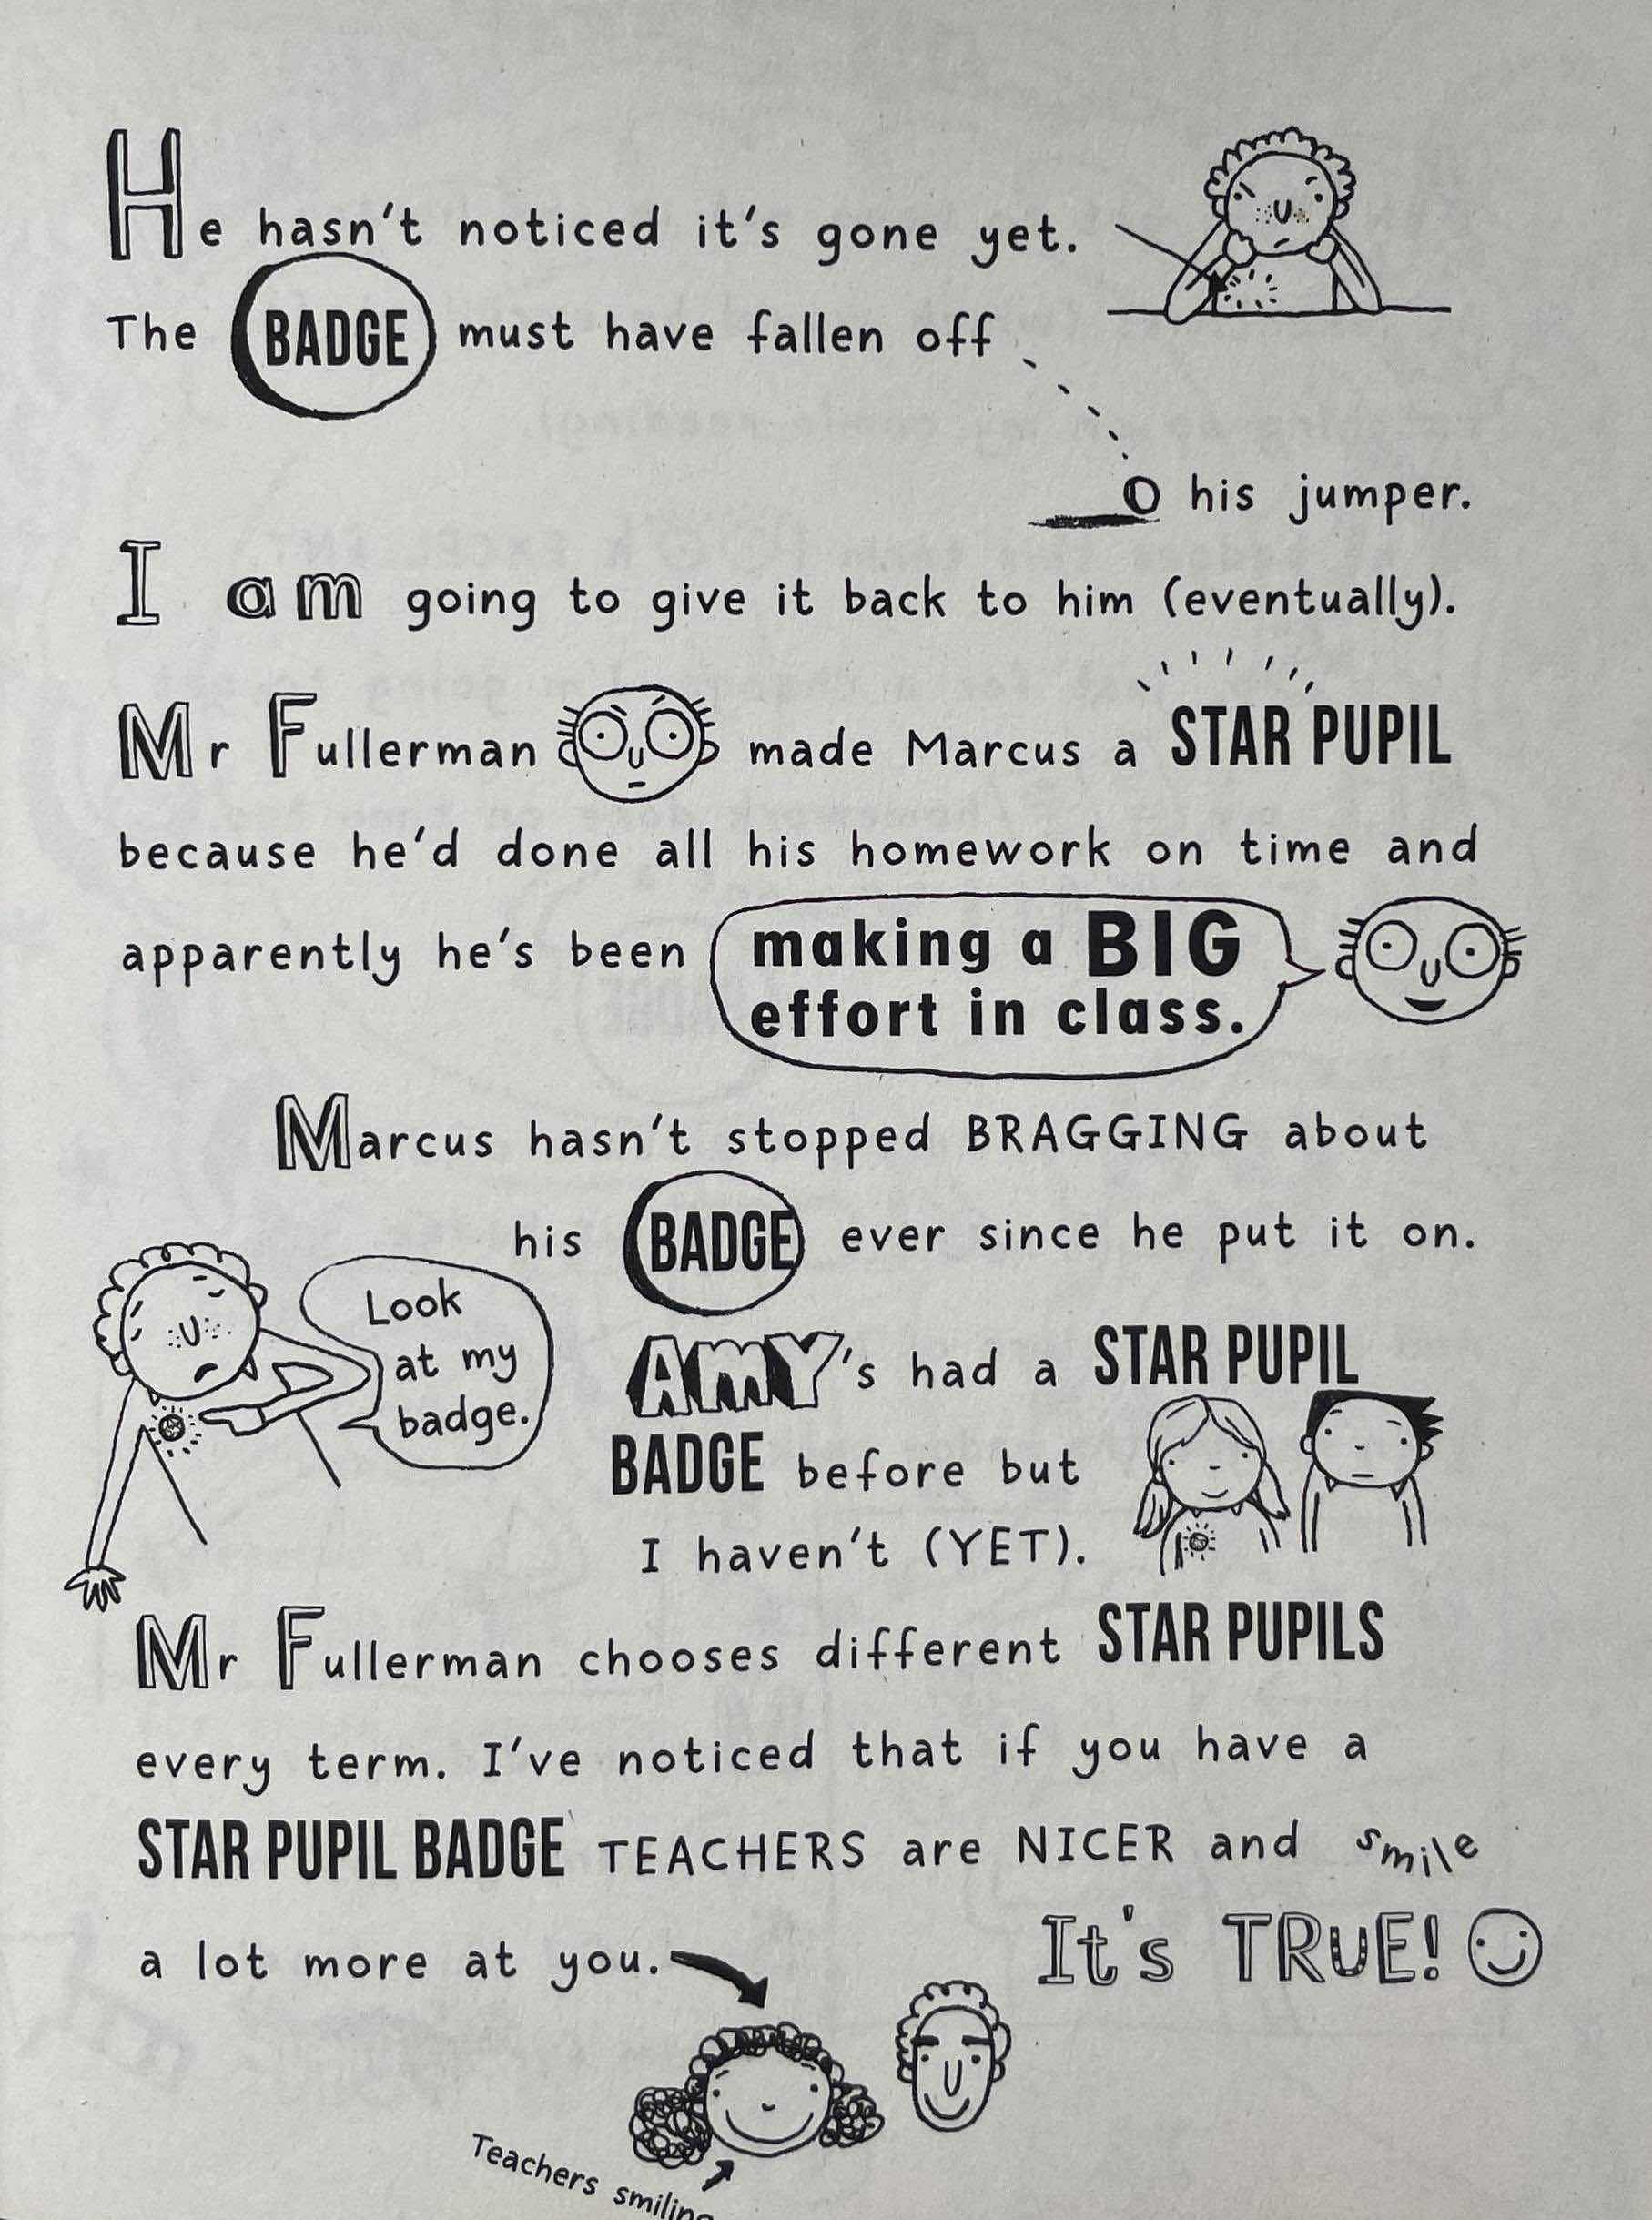 He hasn't noticed it's gone yet.
The BADGE must have fallen off
his jumper.
I am going to give it back to him (eventually).
Mr Fullerman made Marcus a STAR PUPIL
because he'd done all his homework on time and
apparently he's been making a BIG
effort in class.
Marcus hasn't stopped BRAGGING about
his BADGE ever since he put it on.
Look
at my
badge.
AMY's had a STAR PUPIL
BADGE before but
I haven't (YET).
Mr Fullerman chooses different STAR PUPILS
every term. I've noticed that if you have a
STAR PUPIL BADGE TEACHERS are NICER and smile
a lot more at you.
It's TRUE!
Teachers smiling